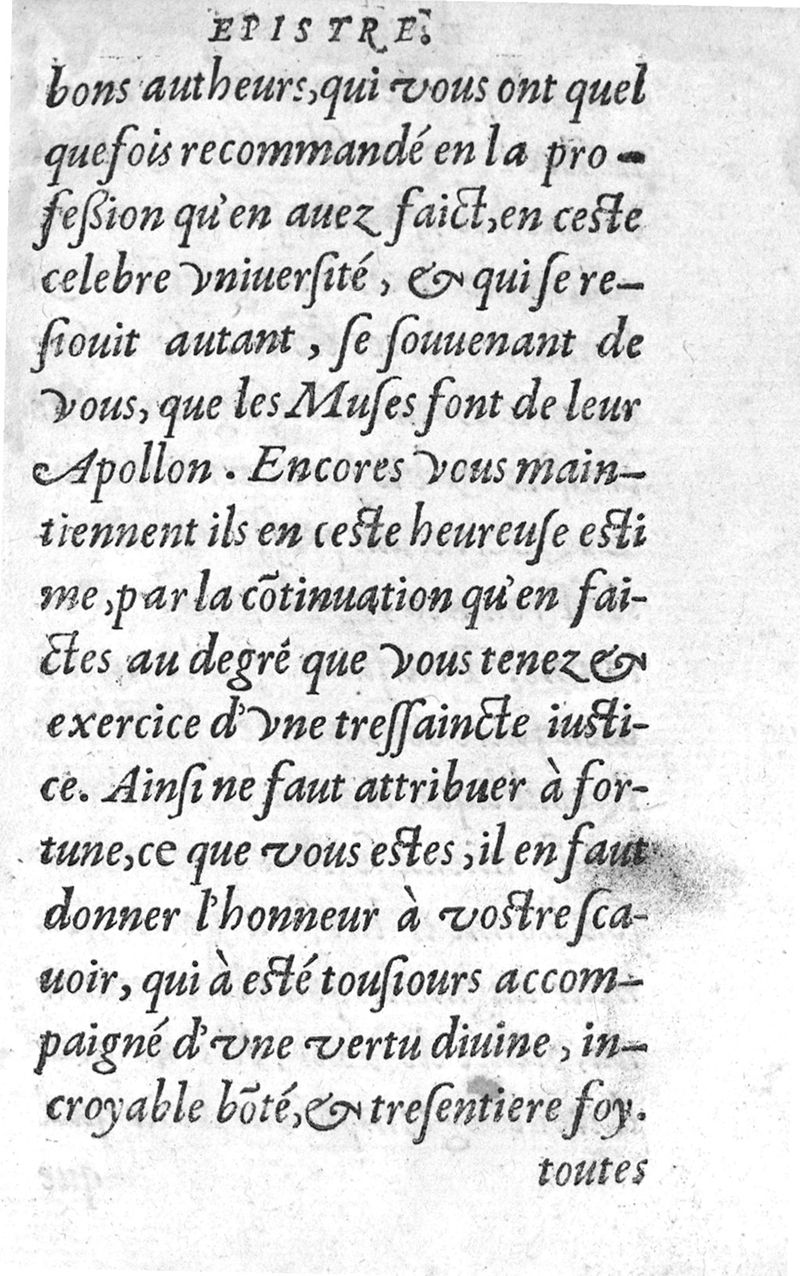 EPISTRE.
bons autheurs,qui vous ont quel
quefois recommandé en la pro-
feßion qu'en auez faict,en ceste
celebre Vniuersité, & qui se re-
siouit autant, se souuenant de
Vous, que les Muses font de leur
Apollon. Encores Vous main-
tiennent ils en ceste heureuse esti
me,par la cõtinuation qu'en fai-
ctes au degré que Vous tenez &
exercice d'Vne tressaincte iusti-
ce. Ainsi ne faut attribuer à for-
tune,ce que vous estes,il en faut
donner l'honneur à vostre sca-
uoir, qui à esté tousiours accom-
paigné d'vne vertu diuine, in-
croyable bõté,& tresentiere foy.
toutes